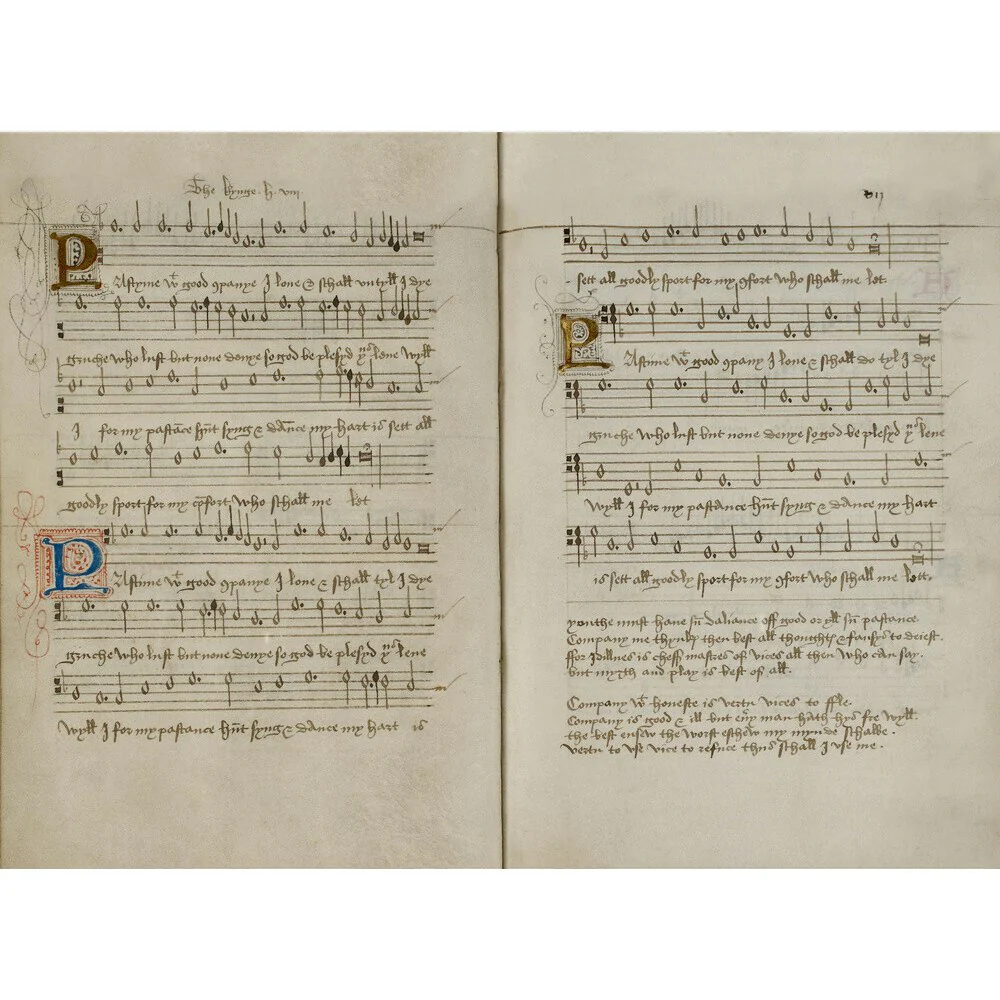 The kynge. h. viii
PAstyme wt good ꝯpanye I love & schall untyll I dye
gruche who lust but none denye so god be plesyd yus leve wyll
I for my pastāce hūt syng & dāce my hart is sett all
goodly sport for my cōfort who schall me let
PAstime wt good ꝯpanye I love & schall tyl I dye
gruche who lust but none denye so god be plesyd yus leve
wyll I for my pastance hūt syng & dance my hart is
sett all goodly sport for my ꝯfort who schall me let
PAstime wt good ꝯpany I love & schall do tyl I dye
gruche who lust but none denye so god be plesyd yus leve
wyll I for my pastance hūt syng & dance my hart
is sett all goodly sport for my ꝯfort who schall me lett.
youthe must have sū daliance off good or yll sū pastance.
Company me thynkꝭ then best all thoughtꝭ & fansys to deiest.
ffor Idillnes is cheff mastres of vices all then who can say.
but myrth and play is best of all.
Company wt honeste is vertu vices to ffle.
Company is good & ill but evꝰy man hath hys fre wyll.
the best ensew the worst eschew my mynde schalbe.
vertu to use vice to refuce thus schall I use me.